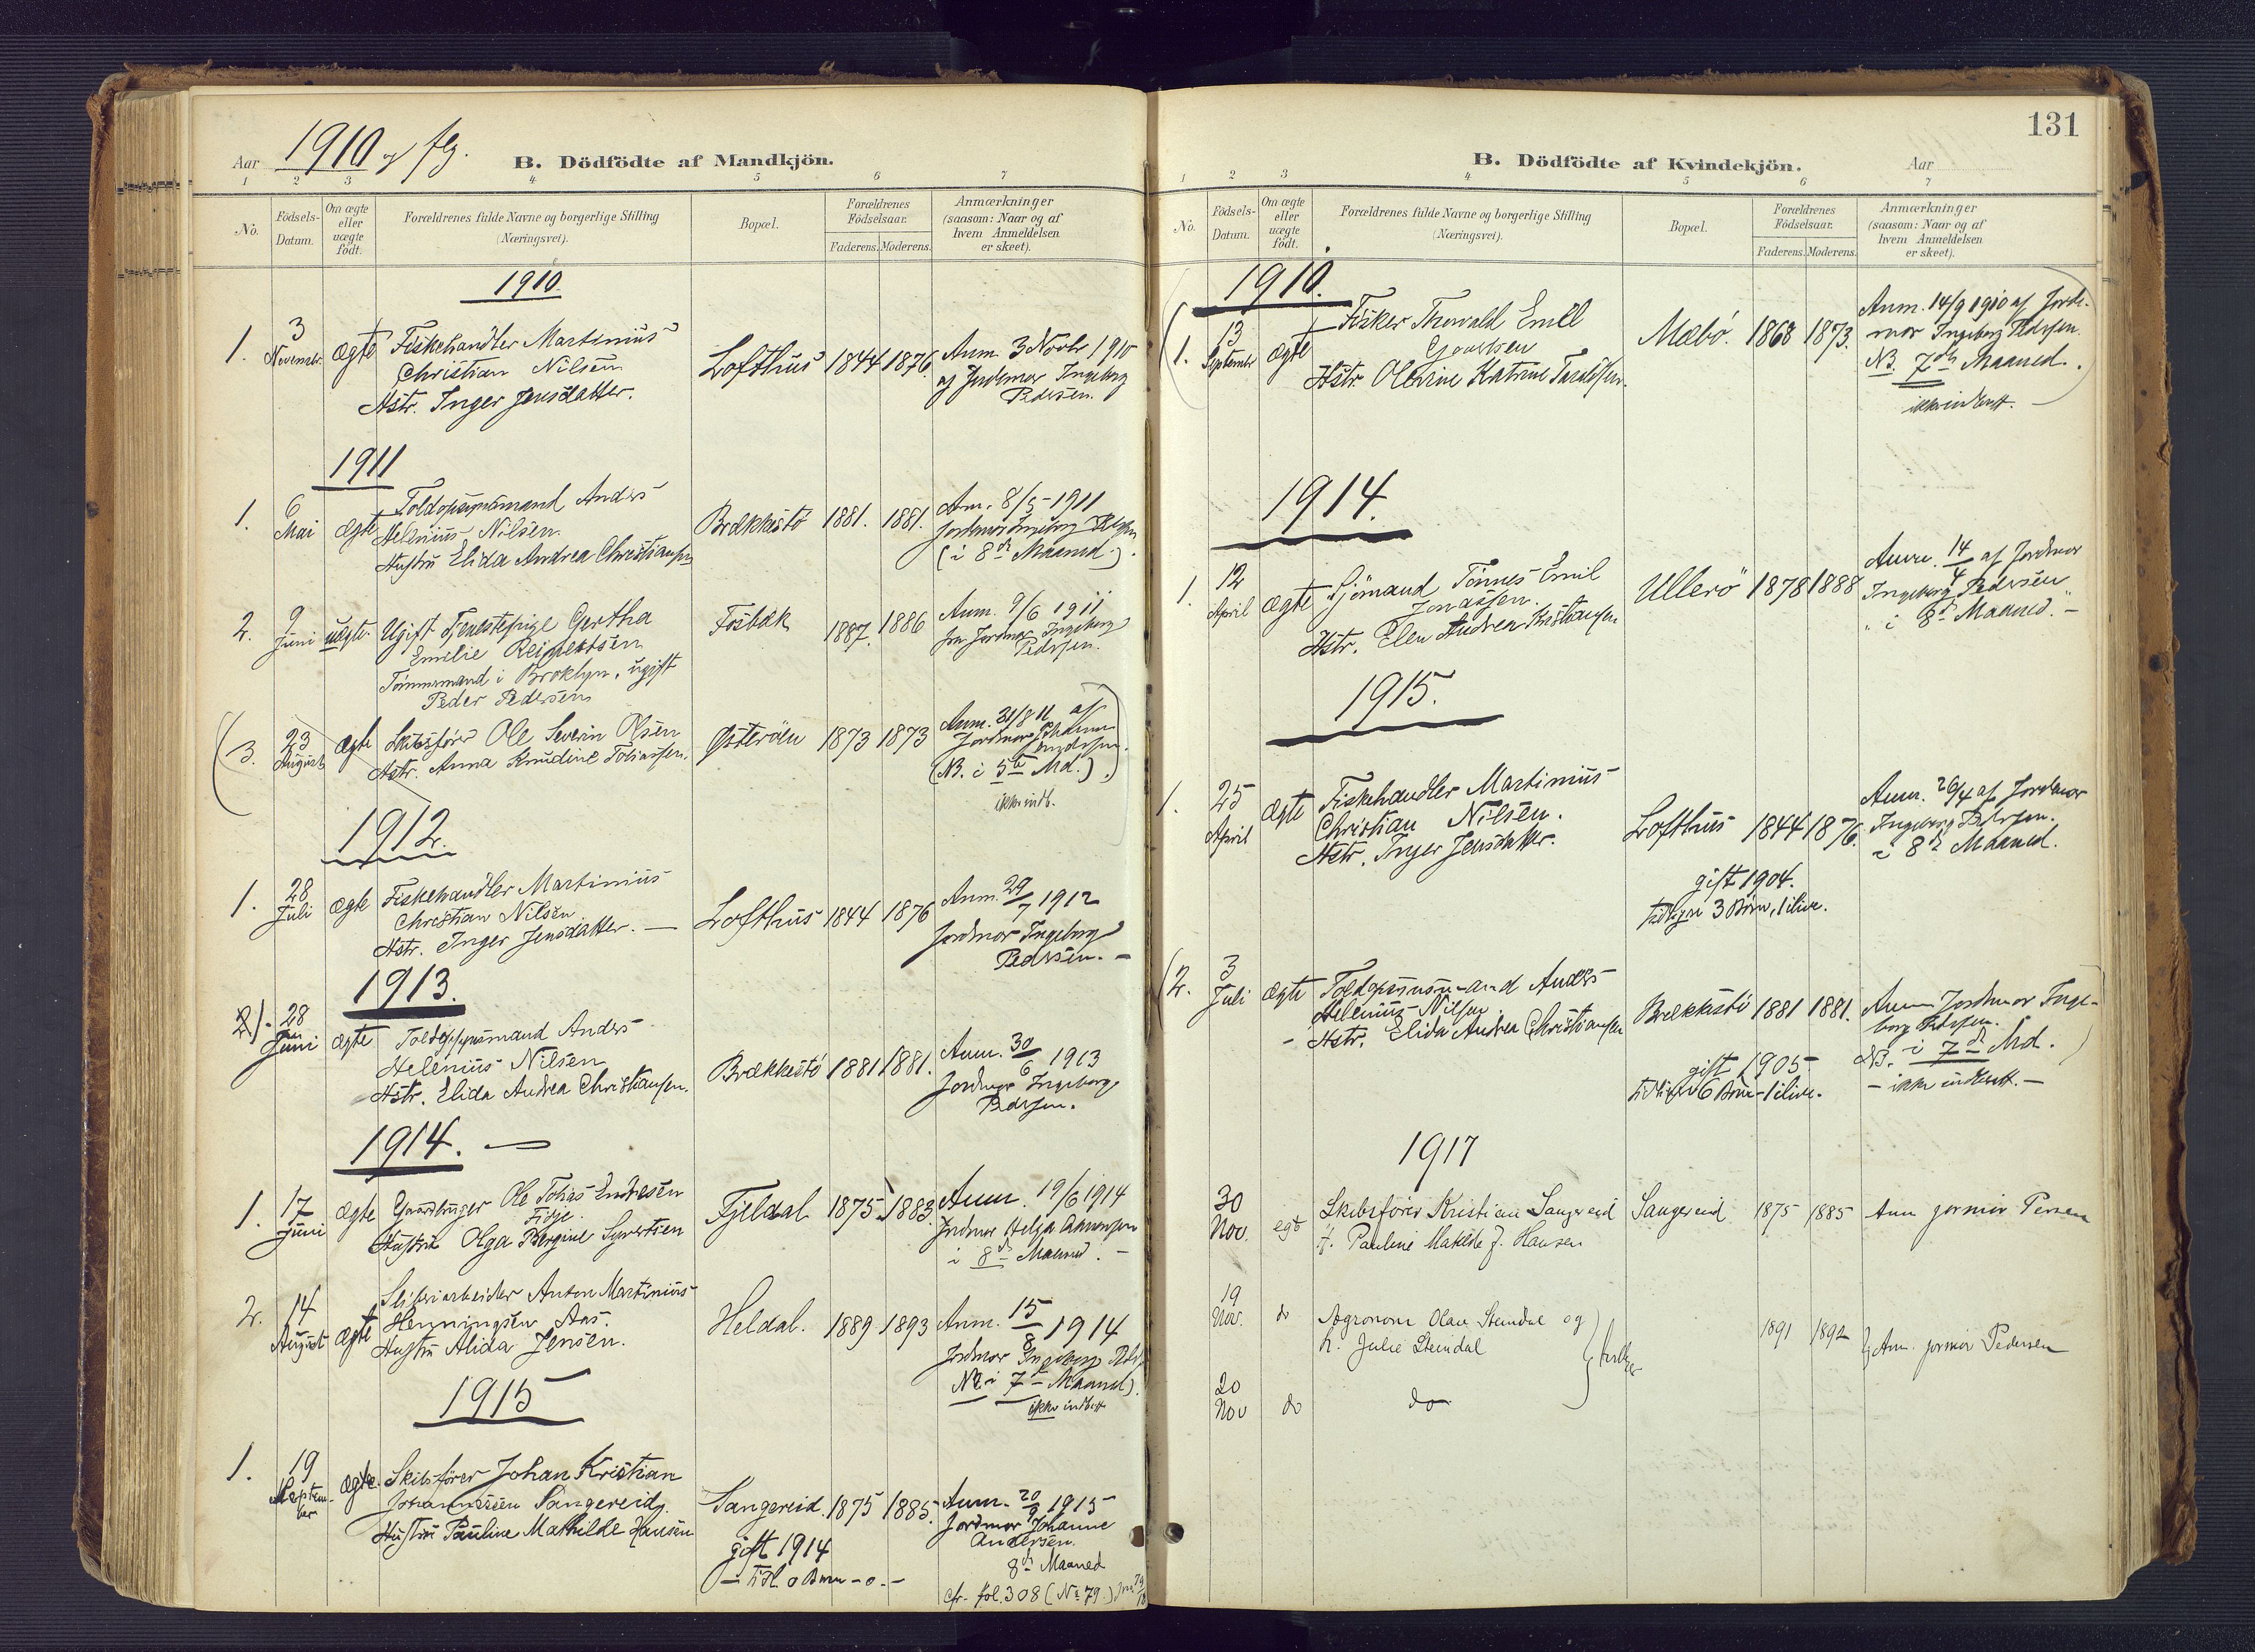 Aar 1910 og flg.
B. Dödfödte af Mandkjön.
1 2 3 4 5 6 7
No.
Födsels-Datum.
Om ægte eller uægte födt.
Forældrenes fulde Navne og borgerlige Stilling (Næringsvei).
Bopæl.
Forældrenes Födselsaar.
Faderens. Moderens.
Anmærkninger (saasom: Naar og af hvem Anmeldelsen er skeet).
1910
1. 3 Novembr. ægte Fiskehandler Martinius
Christian Nilsen
Hstr. Inger Jensdatter.
Lofthus 1844 1876.
Anm. 3 Novbr 1910
af Jordmor Ingeborg
Pedersen.
1911
1. 6 Mai ægte Toldopsynsmand Anders
Helenius Nilsen
Hustru Elida Andrea Christiansen
Brækkestø 1881. 1881.
Anm. 8/5-1911
Jordmor Ingeborg
(i 8de Maaned).
2. 9 Juni uægte. Ugift Tjenestepige Gertha
Emilie Reijnertsen
Tømmermand i Broklyn, ugift
Peder Pedersen
Fosbæk 1887. 1886
Anm. 9/6 1911
fra Jordmor Ingeborg
Pedersen.
3. 23 August ægte Skibsfører Ole Severin Olsen
Hstr. Anna Knudine Tobiassen.
Østerøen 1873 1873
Anm. 31/8 11 af
Jordmor Johanne
Andersen.
(NB. i 5te Md.)
ikke indb.
1912.
1. 28 Juli ægte Fiskehandler Martinius
Christian Nilsen
Hstr. Inger Jensdatter. —
Lofthus 1844 1876
Anm. 29/7 1912
Jordmor Ingeborg
Pedersen. —
1913.
28 Juni ægte Toldopsynsmand Anders
Helenius Nilsen
Hstr. Elida Andrea Christiansen.
Brækkestø 1881 1881.
Anm. 30/6 1913
Jordmor Ingeborg
Pedersen.
1914. —
1. 17 Juni ægte Gaardbruger Ole Tobias Endresen
Tidje.
Hustru Olga Bergine Syvertsen
Fjeldal 1875 1883.
Anm. 19/6 1914
Jordmor Helga
i 8de Maaned. —
2. 14 August ægte Sliberiarbeider Anton Martinius
Henningsen Aas.
Hustru Alida Jensen.
Heldal. 1889 1893
Anm. 15/8 1914
Jordmor Ingeborg
NB. i 7de Maaned).
ikke indbett
1915
1. 19 September ægte. Skibsfører Johan Kristian
Johannessen Sangereid.
Hustru Pauline Mathilde Hansen
Sangereid. 1875 1885.
gift 1914
— Tidl. 0 Børn — 0 —
Anm. 20/9 1915
Jordmor Johanne
Andersen.
8de Maaned
cfr. fol. 308 (No 79.)
131
B. Dödfödte af Kvindekjön.
Aar
1 2 3 4 5 6 7
No.
Födsels-Datum.
Om ægte eller uægte födt.
Forældrenes fulde Navne og borgerlige Stilling (Næringsvei).
Bopæl.
Forældrenes Födselsaar.
Faderens. Moderens.
Anmærkninger (saasom: Naar og af hvem Anmeldelsen er skeet).
1910.
1. 13 September ægte Fisker Thorvald Emil
Hstr. Olevine Katrine
Mæbø. 1868 1873.
Anm. 14/9 1910 af Jord-
mor Ingeborg Pedersen.
NB. 7de Maaned.
ikke indbett.
1914.
1. 12 April ægte Sjömand Tönnes Emil
Jonassen.
Hstr. Elen Andrea Kristiansen
Ullerø 1878 1888
Anm. 14/4 af Jordmor
Ingeborg Pedersen
i 8de Maaned. —
1915.
1. 25 April ægte Fiskehandler Martinius
Christian Nilsen.
Hstr. Inger Jensdatter.
Lofthus 1844 1876.
gift 1904.
tidligere 3 Børn, 1 ilive.
Anm. 26/4 af Jordmor
Ingeborg Pedersen.
i 8de Maaned.
2. 3 Juli ægte Toldopsynsmand Anders
Helenius Nilsen
— Hstr. Elida Andrea Christiansen
Brækkestø 1881 1881.
gift 1905
tidligere 6 Børn — 1 ilive.
Anm Jordmor Inge-
borg Pedersen.
NB. i 7de Md.
— ikke indbett. —
1917
30 Nov. egte Skibsfører Kristian Sangereid
Pauline Matilde f. Hansen
Sangereid 1875 1885
Anm jormor
19 Nov. do Agronom Olav Steindal og
h. Julie Steindal
1891 1892
Anm. jormor Pedersen
20 Nov do do